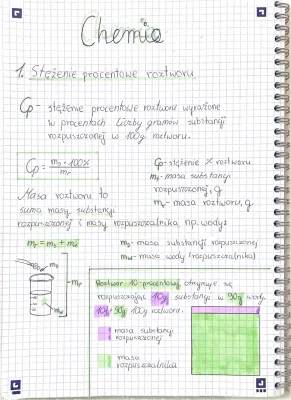 Chemia
1. Stężenie procentowe roztworu
Cp - stężenie procentowe roztworu wyrażone
w procentach liczby gramów substancji
rozpuszczonej w 100g roztworu.
Cp = ms · 100% / mr
Cp - stężenie % roztworu
ms - masa substancji
rozpuszczonej, g
mr - masa roztworu, g
Masa roztworu to
suma masy substancji
rozpuszczonej i masy rozpuszczalnika np. wody:
mr = ms + mw
ms - masa substancji rozpuszczonej
mw - masa wody (rozpuszczalnika)
ms
mw
mr
Roztwór 10-procentowy otrzymuje się
rozpuszczając 10g substancji w 90g wody.
10g + 90g 100g roztworu.
masa substancji
rozpuszczonej
masa
rozpuszczalnika